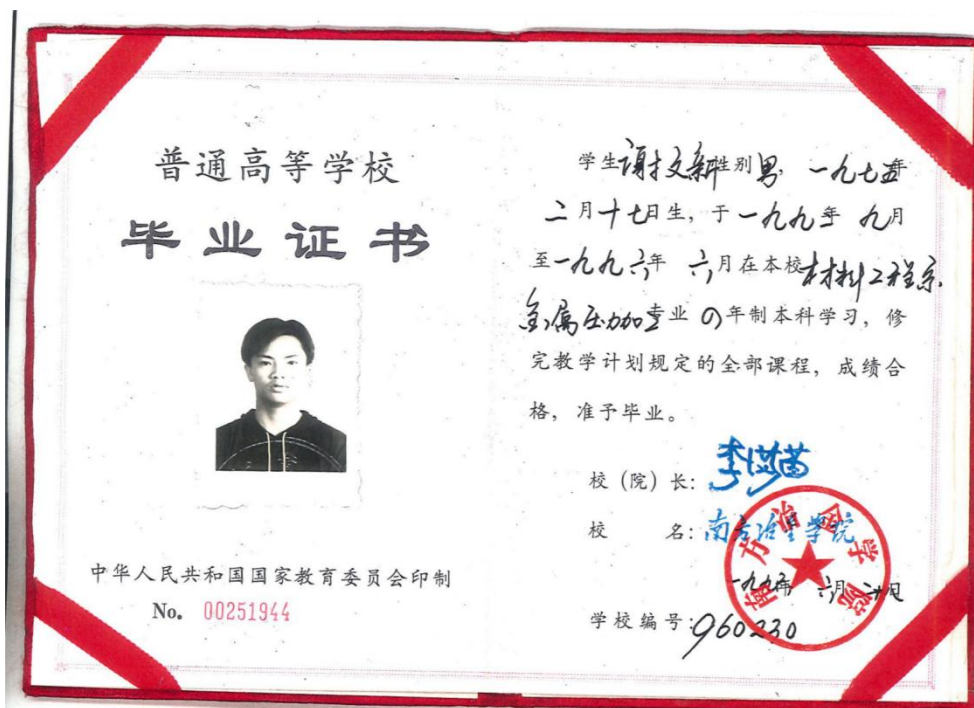 普通高等学校
毕业证书
中华人民共和国国家教育委员会印制
No. 00251944
学生谢文新性别男，一九七五年
二月十七日生，于一九九二年 九月
至一九九六年 六月在本校材料工程系
金属压加专业四年制本科学习，修
完教学计划规定的全部课程，成绩合
格，准予毕业。
校（院）长：
校 名：南方冶金学院
六月二十日
学校编号：960230
南方冶金学院